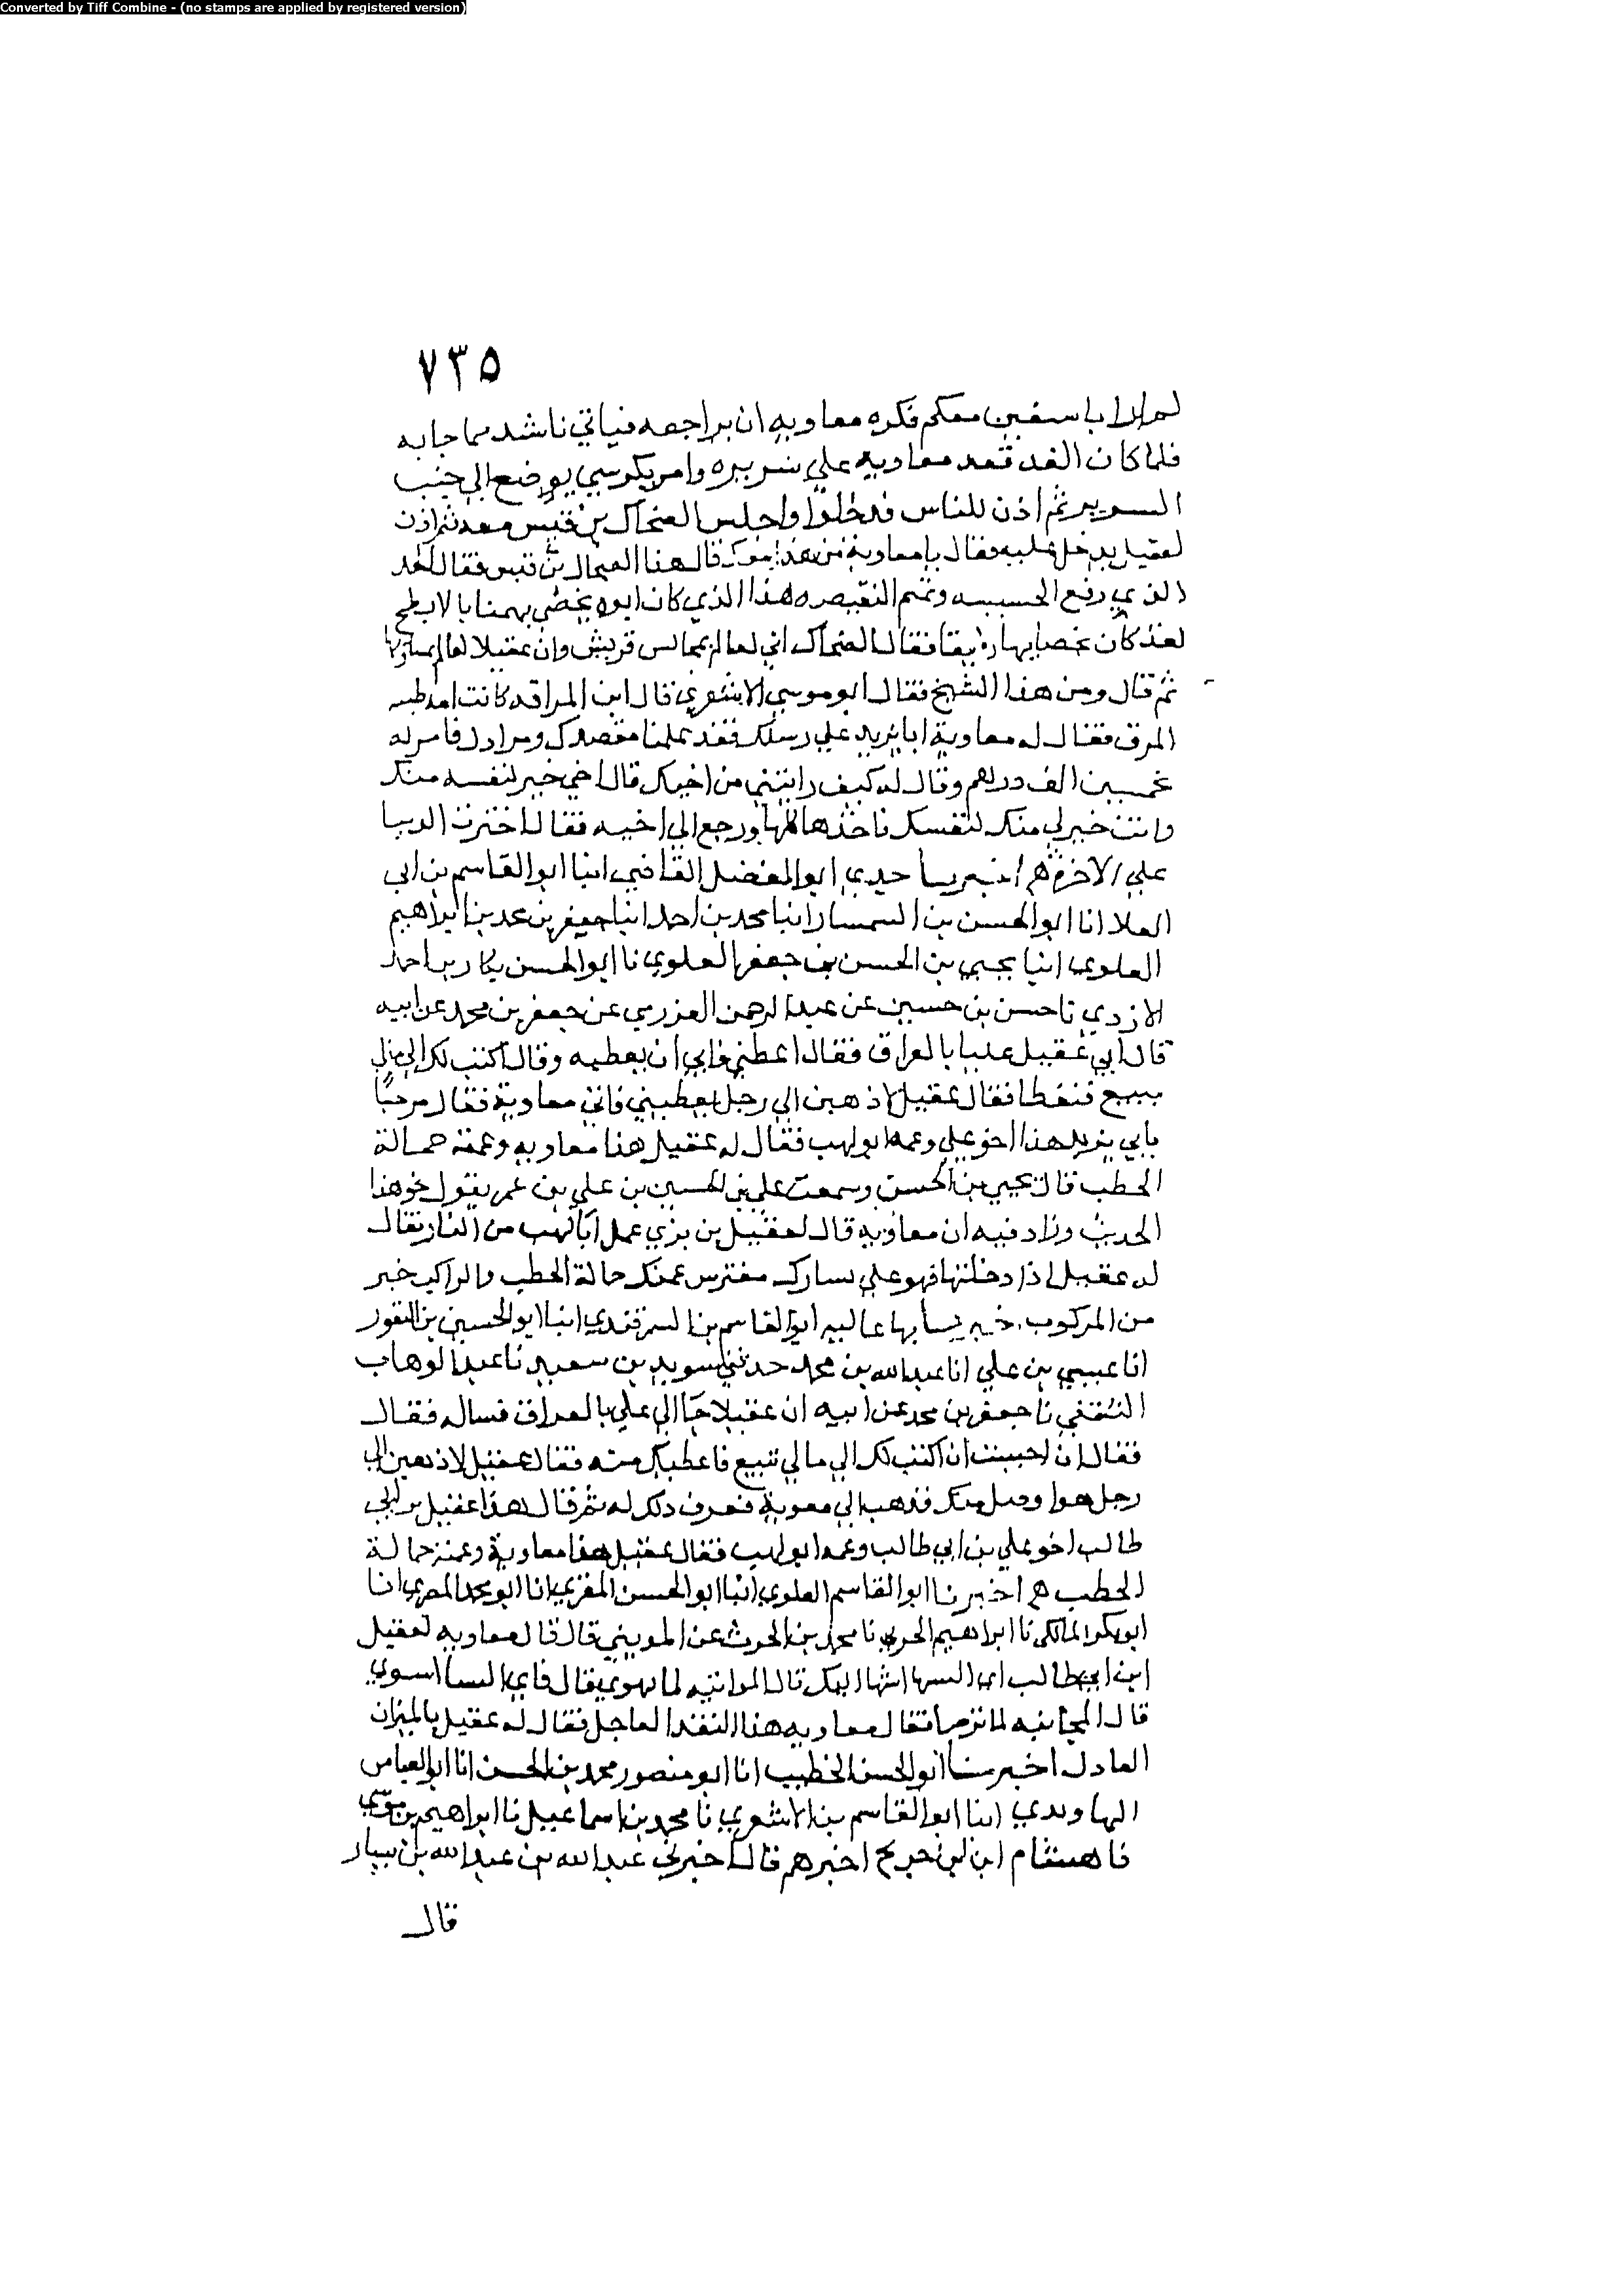 Converted by Tiff Combine - (no stamps are applied by registered version)
٧٣٥
لم ار ابا سفين معكم فكره معاويه ان يراجعه فياتي باشد مما جا به
فلما كان الغد قعد معاويه علي سريره وامر بكرسي يوضع الي جنب
السرير ثم اذن للناس فدخلوا واجلس الضحاك بن قيس معه ثم اذن
لعقيل يدخل عليه فقال يا معاوية من هذا معك قال هذا الضحاك بن قيس فقال الحمد
الذي رفع الخسيسه وتمم النقيصه هذا الذي كان ابوه يخصي بهمنا بالابطح
لقد كان بخصايها رفيقا فقال الضحاك اني لعالم بمحالس قريش وان عقيلا لعالم
ثم قال ومن هذا الشيخ فقال ابو موسي الاشعري قال ابن المراقه كانت امه طيبه
المرق فقال له معاوية ابا يزيد علي رسلك فقد علمنا مقصدك ومرادك فامر له
بخمسين الف درهم وقال له كيف رايتني من اخيك قال اخي خير لنفسه منك
وانت خير لي منك لنفسك فاخذها كلها ورجع الي اخيه فقال اخترت الدنيا
علي الاخرة هم اخبرنا جدي ابو المفضل القاضي انبا ابو القاسم بن ابي
العلا انا ابو الحسن بن السمسار انبا محمد بن احمد انبا جعفر بن محمد بن ابراهيم
العلوي انبا يحيي بن الحسن بن جعفر العلوي نا ابو الحسن بكار بن احمد
الازدي نا حسن بن حسين عن عبد الرحمن العزرمي عن جعفر بن محمد عن ابيه
قال اتي عقيل عليا بالعراق فقال اعطني فابي ان يعطيه وقال اكتب لك الي مالي
بينبع فتعطا فقال عقيل لاذهبن الي رجل يعطيني فاتي معاوية فقال مرحبًا
بابي يزيد هذا اخو علي وعمه ابو لهب فقال له عقيل هذا معاويه وعمته حمالة
الحطب قال يحيي بن الحسن وسمعت علي بن الحسين بن علي بن عمر يقول نحو هذا
الحديث وزاد فيه ان معاويه قال لعقيل بن يزي عمك ابا لهب من النار فقال
له عقيل اذا دخلتها فهو علي يسارك مفترس عمتك حمالة الحطب والراكب خير
من المركوب. اخبرنا بها عاليه ابو القاسم بن السمرقندي انبا ابو الحسين بن النقور
انا عيسي بن علي انا عبد الله بن محمد حدثني سويد بن سعيد نا عبد الوهاب
الثقفي نا جعفر بن محمد عن ابيه ان عقيلا جآ الي علي بالعراق فساله فقال
فقال ان احببت ان اكتب لك الي مالي بينبع فاعطيك منه فقال عقيل لاذهبن الي
رجل هو اوصل منك فذهب الي معوية فعرف ذلك له ثم قال هذا عقيل بن ابي
طالب اخو علي بن ابي طالب وعمه ابو لهب فقال عقيل هذا معاوية وعمته حمالة
الحطب هم اخبرنا ابو القاسم العلوي انبا ابو الحسن المقري انا ابو محمد المصري انا
ابو بكر المالكي نا ابراهيم الحربي نا محمد بن الحرث عن المديني قال قال معاويه لعقيل
ابن ابي طالب اي النسا اشها اليك قال المواتيه لما يهوي قال فاي النسا اسوي
قال المجانبه لما ترضا فقال معاويه هذا النقد العاجل فقال له عقيل بالميزان
العادل اخبرنا ابو الحسن الخطيب انا ابو منصور محمد بن الحسن انا ابو العباس
النهاوندي انبا ابو القاسم بن الاشعري نا محمد بن اسماعيل نا ابراهيم بن موسي
نا هشام ابن ابن جريج اخبرهم قال اخبرني عبد الله بن عبد الله بن يسار
قال